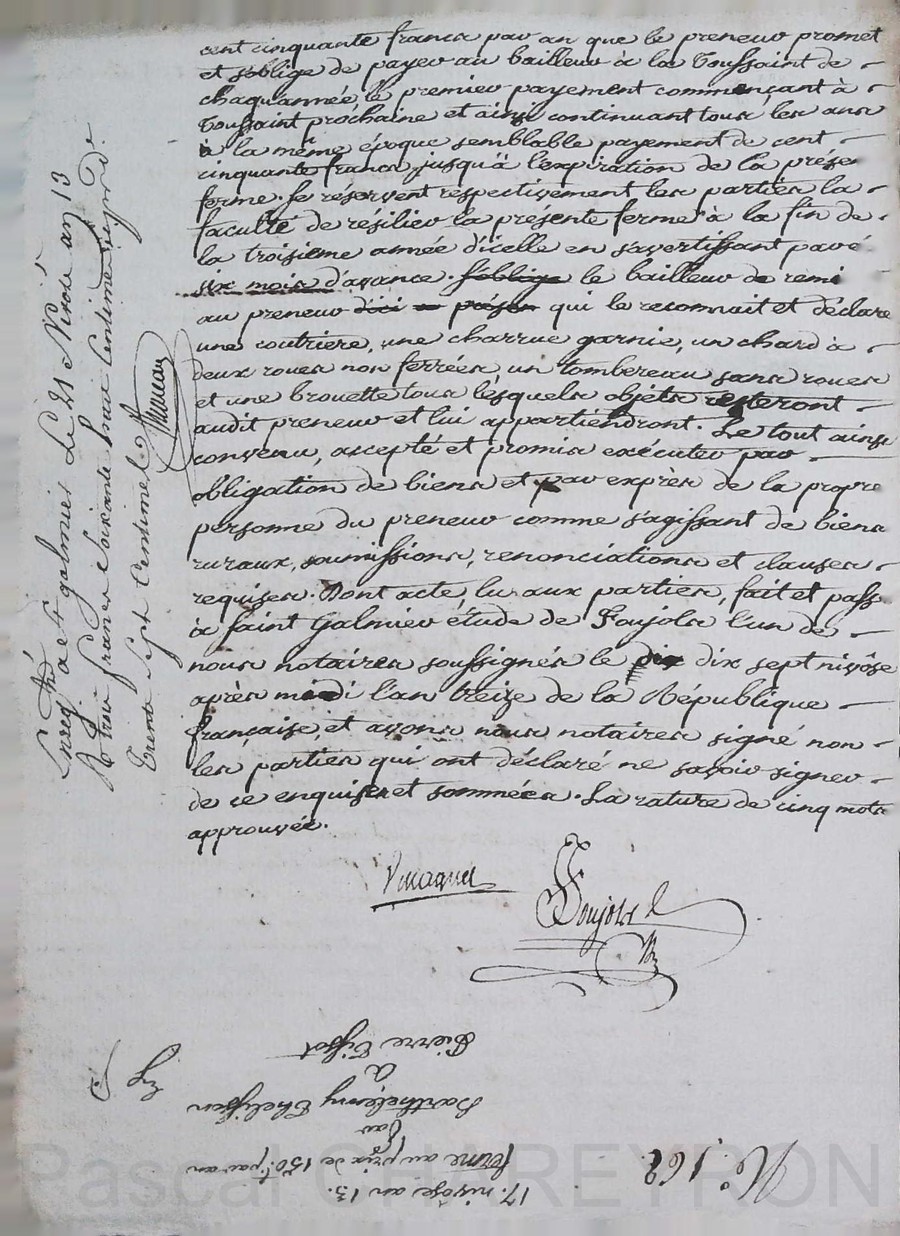 cent cinquante francs par an que le preneur promet
et s'oblige de payer au bailleur à la Toussaint de
chaqu'année, le premier payement commençant à
Toussaint prochaine et ainsi continuant tous les ans
à la même époque semblable payement de cent
cinquante francs jusqu'à l'expiration de la présen
ferme. Se réservent respectivement les parties la
faculté de résilier la présente ferme à la fin de
la troisième année d'icelle en s'avertissant par é
six mois d'avance. s'oblige le bailleur de remi
au preneur d'ici a présen qui le reconnait et déclare
une coutrière, une charrue garnie, un chard à
deux roues non ferrées, un tombereau sans roues
et une brouette tous lesquels objets resteront
audit preneur et lui appartiendront. Le tout ainsi
convenu, accepté et promis exécuter par
obligation de biens et par exprès de la propre
personne du preneur comme s'agissant de biens
ruraux, soumissions, renonciations et clauses
requises. Dont acte, lu aux parties, fait et pass
à saint Galmier étude de Foujols l'un de
nous notaires soussignés le dix sept nivôse
après midi l'an treize de la République
française, et avons nous notaires signé non
les parties qui ont déclaré ne savoir signer
de ce enquises et sommées. La rature de cinq mots
approuvée.
Foujols
Nre
Enreg. a St galmier Le 21 Nivose an 13
trois francs soixante huit Centimes
Trente sept Centimes
17. nivôse an 13.
ferme au prix de 150f. par an
par
Barthélemy Thelisson
à
Pierre Tissot
No. 162.
Pascal CHAREYRON